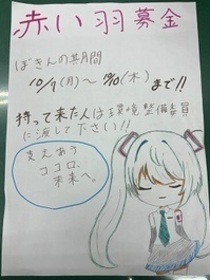 赤い羽募金
ぼきんの期間
10/7(月)～10/10(木)まで!!
持って来た人は環境整備委員
に渡して下さい!!
支えあう
ココロ、
未来へ。